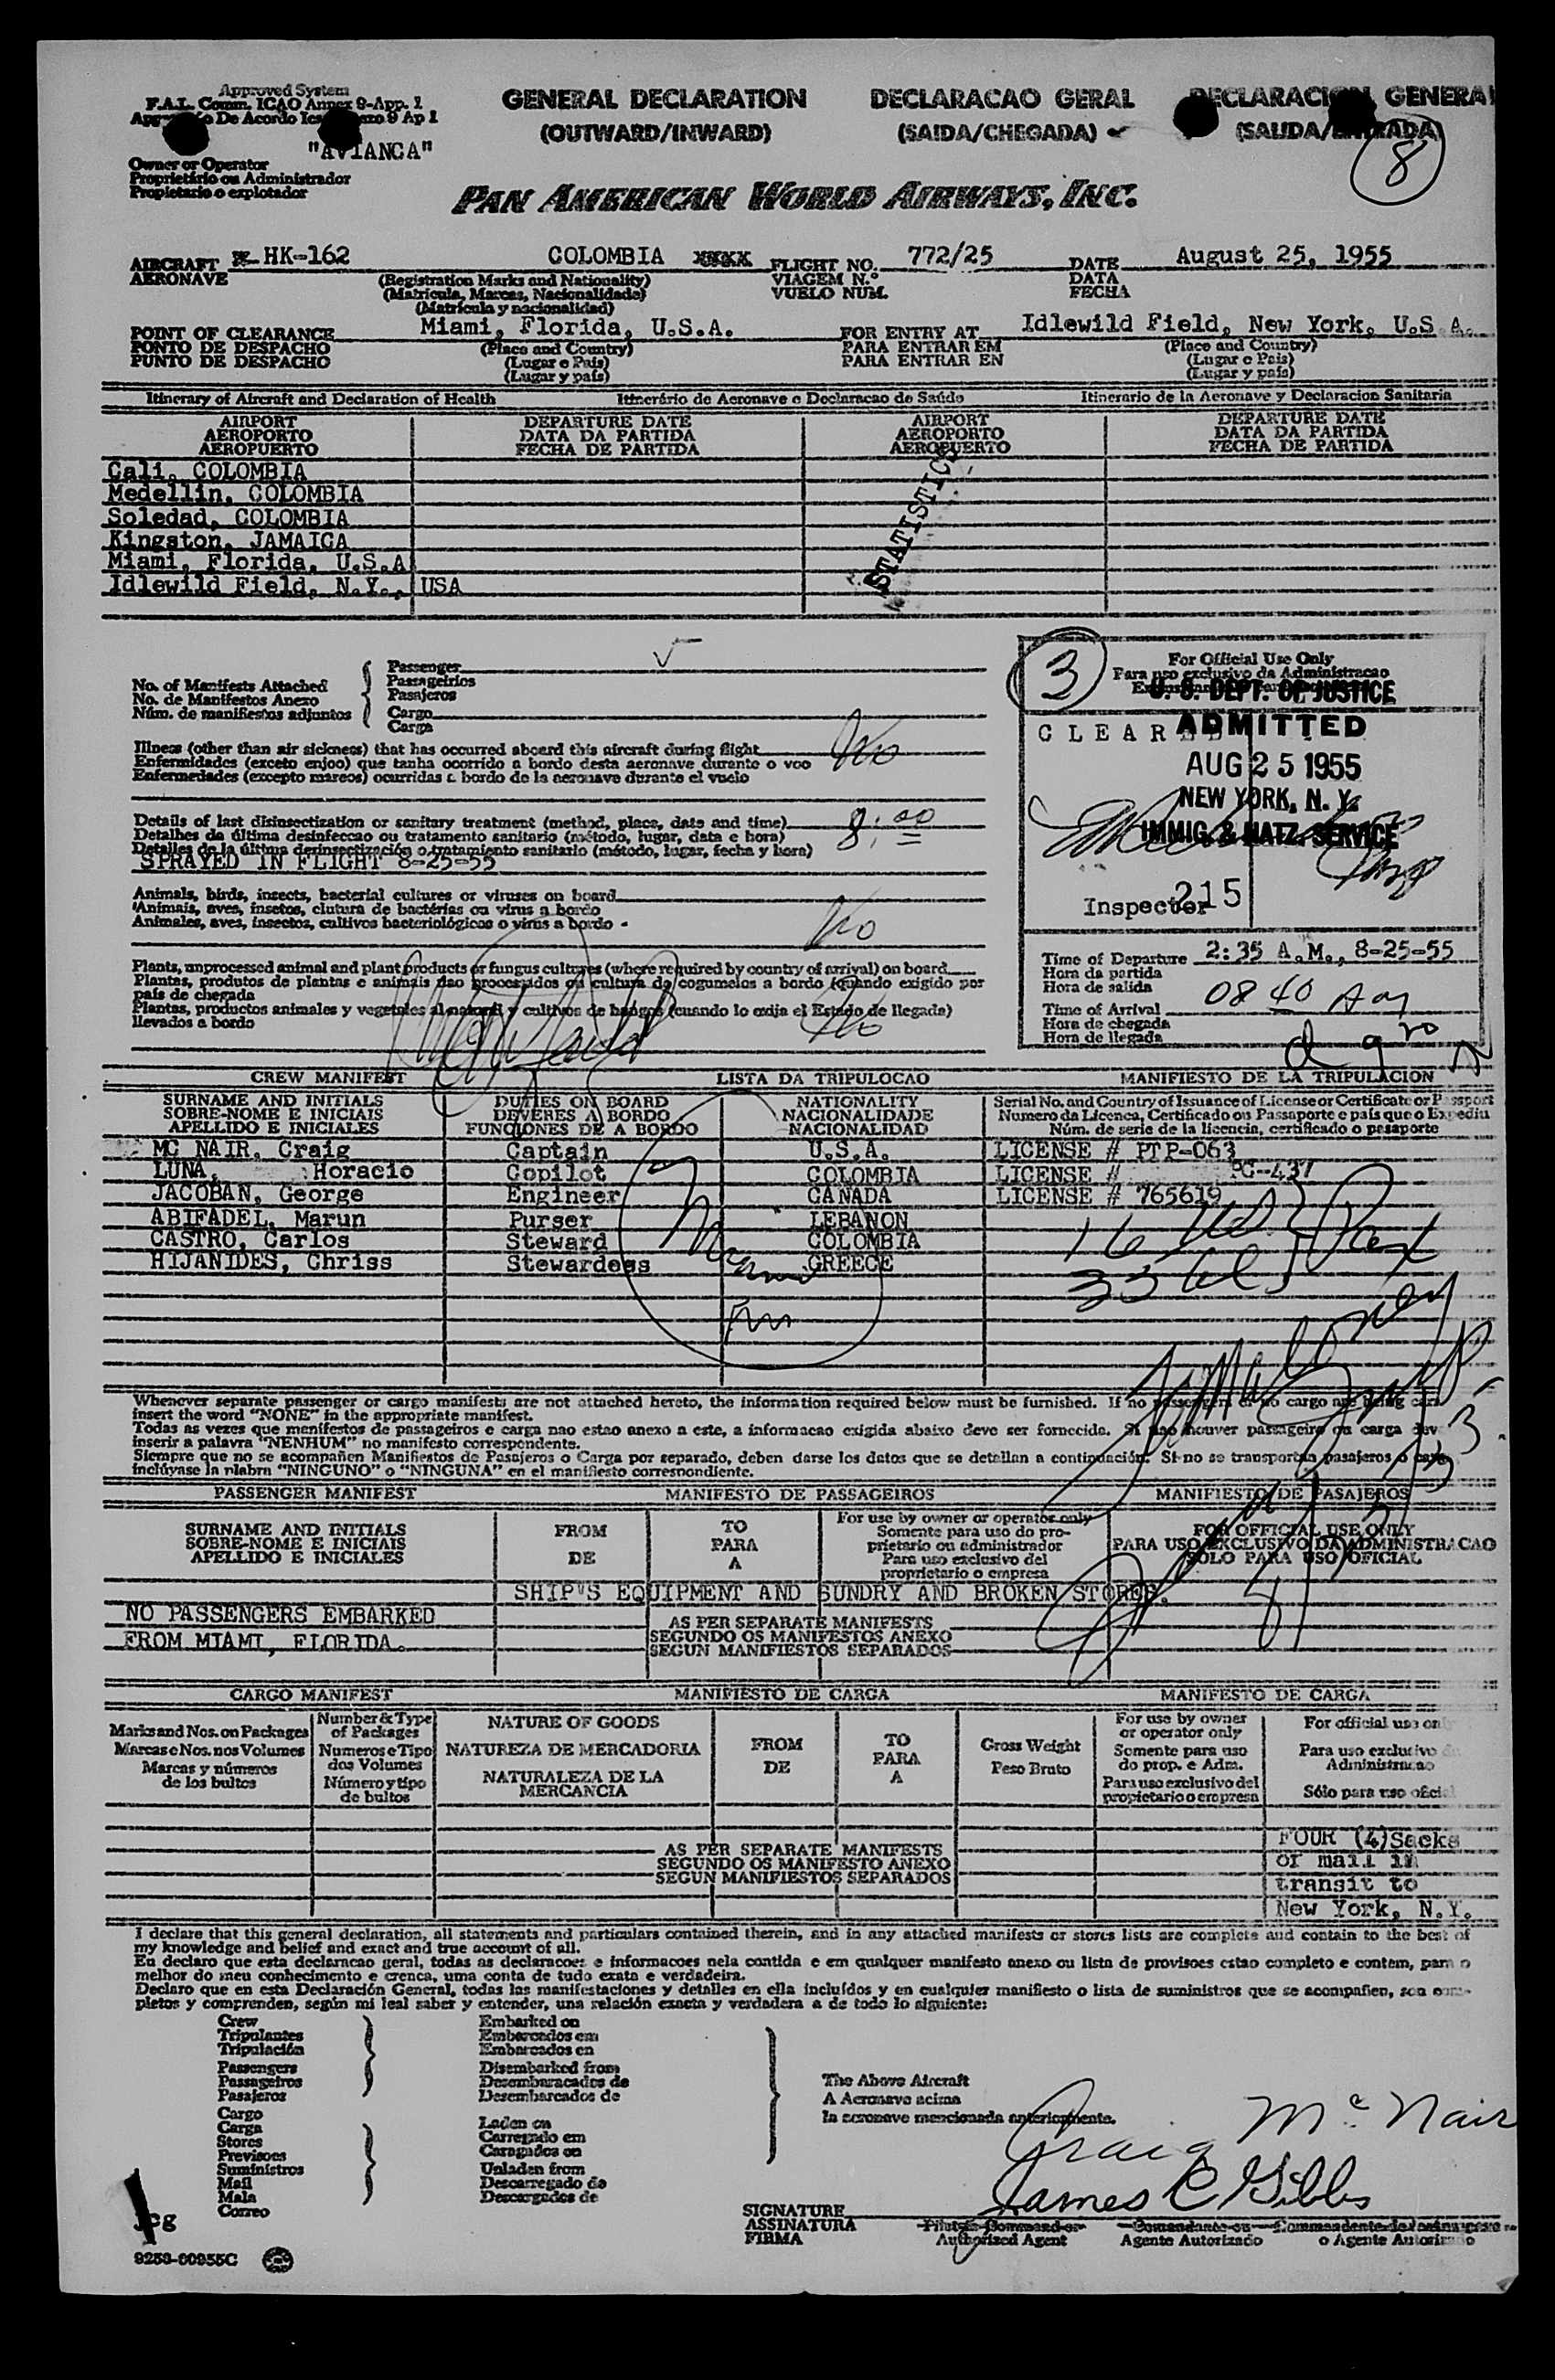 Approved System
F.A.L. Comm. ICAO Annex 9-App. 1
De Acordo 9 Ap 1
"AVIANCA"
Owner or Operator
Proprietário ou Administrador
Propietario o explotador
GENERAL DECLARATION DECLARACAO GERAL DECLARACION GENERAL
(OUTWARD/INWARD) (SAIDA/CHEGADA) (SALIDA/ENTRADA)
8
PAN AMERICAN WORLD AIRWAYS, INC.
AIRCRAFT HK-162 COLOMBIA FLIGHT NO. 772/25 DATE August 25, 1955
AERONAVE (Registration Marks and Nationality) VIAGEM N.º DATA
(Matricula, Marcas, Nacionalidade) VUELO NUM. FECHA
(Matrícula y nacionalidad)
POINT OF CLEARANCE Miami, Florida, U.S.A. FOR ENTRY AT Idlewild Field, New York, U.S.A.
PONTO DE DESPACHO (Place and Country) PARA ENTRAR EM (Place and Country)
PUNTO DE DESPACHO (Lugar e Pais) PARA ENTRAR EN (Lugar e Pais)
(Lugar y país) (Lugar y país)
Itinerary of Aircraft and Declaration of Health Itinerário de Aeronave e Declaracao de Saúde Itinerario de la Aeronave y Declaracion Sanitaria
AIRPORT DEPARTURE DATE AIRPORT DEPARTURE DATE
AEROPORTO DATA DA PARTIDA AEROPORTO DATA DA PARTIDA
AEROPUERTO FECHA DE PARTIDA AEROPUERTO FECHA DE PARTIDA
Cali, COLOMBIA
Medellin, COLOMBIA
Soledad, COLOMBIA
Kingston, JAMAICA
Miami, Florida, U.S.A
Idlewild Field, N.Y., USA
STATISTICS
No. of Manifests Attached
No. de Manifestos Anexo
Núm. de manifiestos adjuntos
Passenger
Passageirios
Pasajeros
Cargo
Carga
Illness (other than air sickness) that has occurred aboard this aircraft during flight No
Enfermidades (exceto enjoo) que tenha ocorrido a bordo desta aeronave durante o voo
Enfermedades (excepto mareos) ocurridas a bordo de la aeronave durante el vuelo
Details of last disinsectization or sanitary treatment (method, place, date and time) 8:00
Detalhes da última desinfeccao ou tratamento sanitario (método, lugar, data e hora)
Detalles de la última desinsectización o tratamiento sanitario (método, lugar, fecha y hora)
SPRAYED IN FLIGHT 8-25-55
Animals, birds, insects, bacterial cultures or viruses on board
Animais, aves, insetos, clutura de bactérias ou virus a bordo
Animales, aves, insectos, cultivos bacteriológicos o virus a bordo No
Plants, unprocessed animal and plant products or fungus cultures (where required by country of arrival) on board
Plantas, produtos de plantas e animais nao processados ou cultura de cogumelos a bordo (quando exigido por
país de chegada
Plantas, productos animales y vegetales al natural y cultivos de hongos (cuando lo exija el Estado de llegada)
llevados a bordo No
3
For Official Use Only
Para uso exclusivo da Administracao
U. S. DEPT. OF JUSTICE
CLEARED
ADMITTED
AUG 25 1955
NEW YORK, N. Y.
IMMIG. & NATZ. SERVICE
Inspector 215
Time of Departure 2:35 A.M., 8-25-55
Hora da partida
Hora de salida
Time of Arrival 0840 Am
Hora de chegada
Hora de llegada
CREW MANIFEST LISTA DA TRIPULOCAO MANIFIESTO DE LA TRIPULACION
SURNAME AND INITIALS DUTIES ON BOARD NATIONALITY Serial No. and Country of Issuance of License or Certificate or Passport
SOBRE-NOME E INICIAIS DEVERES A BORDO NACIONALIDADE Numero da Licenca, Certificado ou Passaporte e país que o Expediu
APELLIDO E INICIALES FUNCIONES DE A BORDO NACIONALIDAD Núm. de serie de la licencia, certificado o pasaporte
MC NAIR, Craig Captain U.S.A. LICENSE # PTP-063
LUNA, Horacio Copilot COLOMBIA LICENSE # PC-437
JACOBAN, George Engineer CANADA LICENSE # 765619
ABIFADEL, Marun Purser LEBANON
CASTRO, Carlos Steward COLOMBIA
HIJANIDES, Chriss Stewardess GREECE
Whenever separate passenger or cargo manifests are not attached hereto, the information required below must be furnished. If no passengers or no cargo are being
insert the word "NONE" in the appropriate manifest.
Todas as vezes que menifestos de passageiros e carga nao estao anexo a este, a informacao exigida abaixo deve ser fornecida. Si nao houver passageiro ou carga
inserir a palavra "NENHUM" no manifesto correspondente.
Siempre que no se acompañen Manifiestos de Pasajeros o Carga por separado, deben darse los datos que se detallan a continuación. Si no se transportan pasajeros o
inclúyase la plabra "NINGUNO" o "NINGUNA" en el manifiesto correspondiente.
PASSENGER MANIFEST MANIFESTO DE PASSAGEIROS MANIFIESTO DE PASAJEROS
SURNAME AND INITIALS
SOBRE-NOME E INICIAIS
APELLIDO E INICIALES
FROM
DE
TO
PARA
A
For use by owner or operator only
Somente para uso do pro-
prietario ou administrador
Para uso exclusivo del
proprietario o empresa
FOR OFFICIAL USE ONLY
PARA USO EXCLUSIVO DA ADMINISTRACAO
SOLO PARA USO OFICIAL
SHIP'S EQUIPMENT AND SUNDRY AND BROKEN STORES.
NO PASSENGERS EMBARKED
FROM MIAMI, FLORIDA.
AS PER SEPARATE MANIFESTS
SEGUNDO OS MANIFESTOS ANEXO
SEGUN MANIFIESTOS SEPARADOS
CARGO MANIFEST MANIFIESTO DE CARGA MANIFESTO DE CARGA
Marks and Nos. on Packages
Marcas e Nos. nos Volumes
Marcas y números
de los bultos
Number & Type
of Packages
Numeros e Tipo
dos Volumes
Número y tipo
de bultos
NATURE OF GOODS
NATUREZA DE MERCADORIA
NATURALEZA DE LA
MERCANCIA
FROM
DE
TO
PARA
A
Gross Weight
Peso Bruto
For use by owner
or operator only
Somente para uso
do prop. e Adm.
Para uso exclusivo del
propietario o empresa
For official use only
Para uso exclusivo da
Administracao
Sólo para uso oficial
AS PER SEPARATE MANIFESTS
SEGUNDO OS MANIFESTO ANEXO
SEGUN MANIFIESTOS SEPARADOS
FOUR (4) Sacks
of mail in
transit to
New York, N.Y.
I declare that this general declaration, all statements and particulars contained therein, and in any attached manifests or stores lists are complete and contain to the best of
my knowledge and belief and exact and true account of all.
Eu declaro que esta declaracao geral, todas as declaracoes e informacoes nela contida e em qualquer manifesto anexo ou lista de provisoes estao completo e contem, para o
melhor do meu conhecimento e crenca, uma conta de tudo exata e verdadeira.
Declaro que en esta Declaración General, todas las manifestaciones y detalles en ella incluídos y en cualquier manifiesto o lista de suministros que se acompañen, son com-
pletos y comprenden, según mi leal saber y entender, una relación exacta y verdadera a de todo lo siguiente:
Crew
Tripulantes
Tripulación
Passengers
Passageiros
Pasajeros
Cargo
Carga
Stores
Previsoes
Suministros
Mail
Mala
Correo
Embarked on
Embarcados em
Embarcados en
Disembarked from
Desembaracados de
Desembarcados de
Laden on
Carregado em
Caragados on
Unladen from
Descarregado de
Descargados de
The Above Aircraft
A Aeronave acima
la aeronave mencionada anteriormente.
Craig McNair
James C Gibbs
SIGNATURE
ASSINATURA
FIRMA
Pilot in Command or
Authorized Agent
Comandante ou
Agente Autorizado
o Agente Autorizado
jcg
9258-60955C